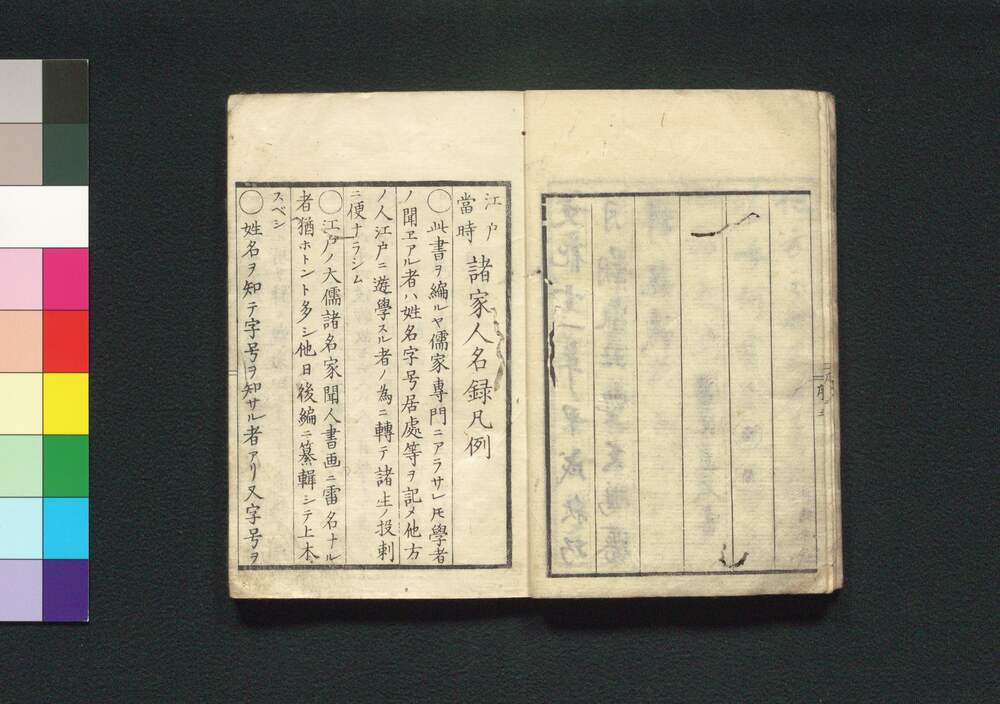 江戸
當時
諸家人名録凡例
◯此書ヲ編ルヤ儒家專門ニアラサレ𪜈學者
ノ聞ヱアル者ハ姓名字号居處等ヲ記メ他方
ノ人江戸ニ遊學スル者ノ為ニ轉テ諸生ノ投刺
ニ便ナラシム
◯江戸ノ大儒諸名家聞人書画ニ雷名ナル
者猶ホトント多シ他日後編ニ纂輯シテ上木
スベシ
◯姓名ヲ知テ字号ヲ知サル者アリ又字号ヲ